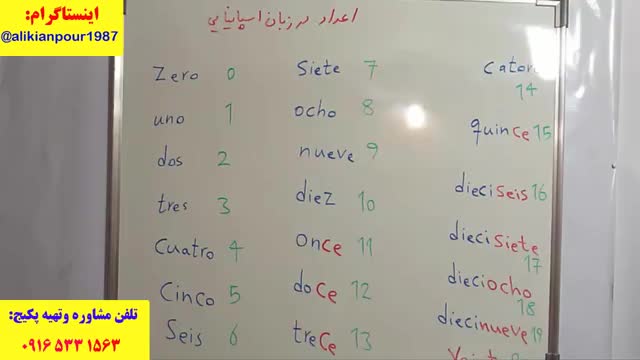 اینستاگرام:
@alikianpour1987
اعداد در زبان اسپانیایی
Zero 0
uno 1
dos 2
tres 3
Cuatro 4
Cinco 5
Seis 6
Siete 7
ocho 8
nueve 9
diez 10
once 11
doce 12
trece 13
14
quince 15
dieciseis 16
diecisiete
17
dieciocho
18
diecinueve 19
تلفن مشاوره وتهیه پکیج:
۰۹۱۶ ۵۳۳ ۱۵۶۳